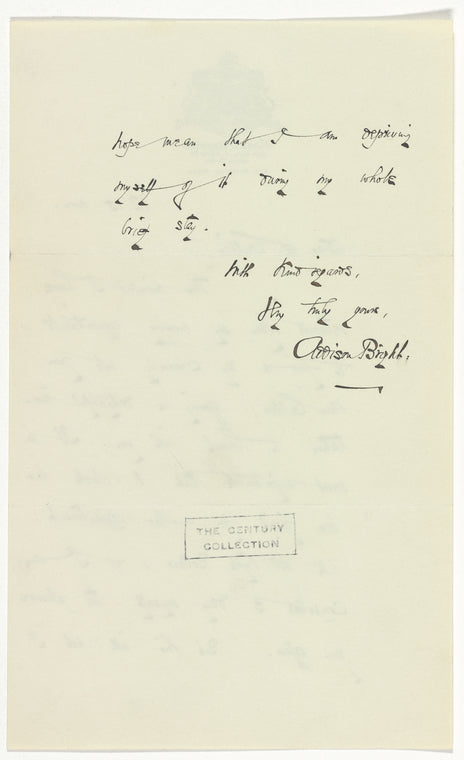 hope mean that I am depriving
myself of it during my whole
brief stay.
With kind regards,
Very truly yours,
Addison Bright.
THE CENTURY
COLLECTION